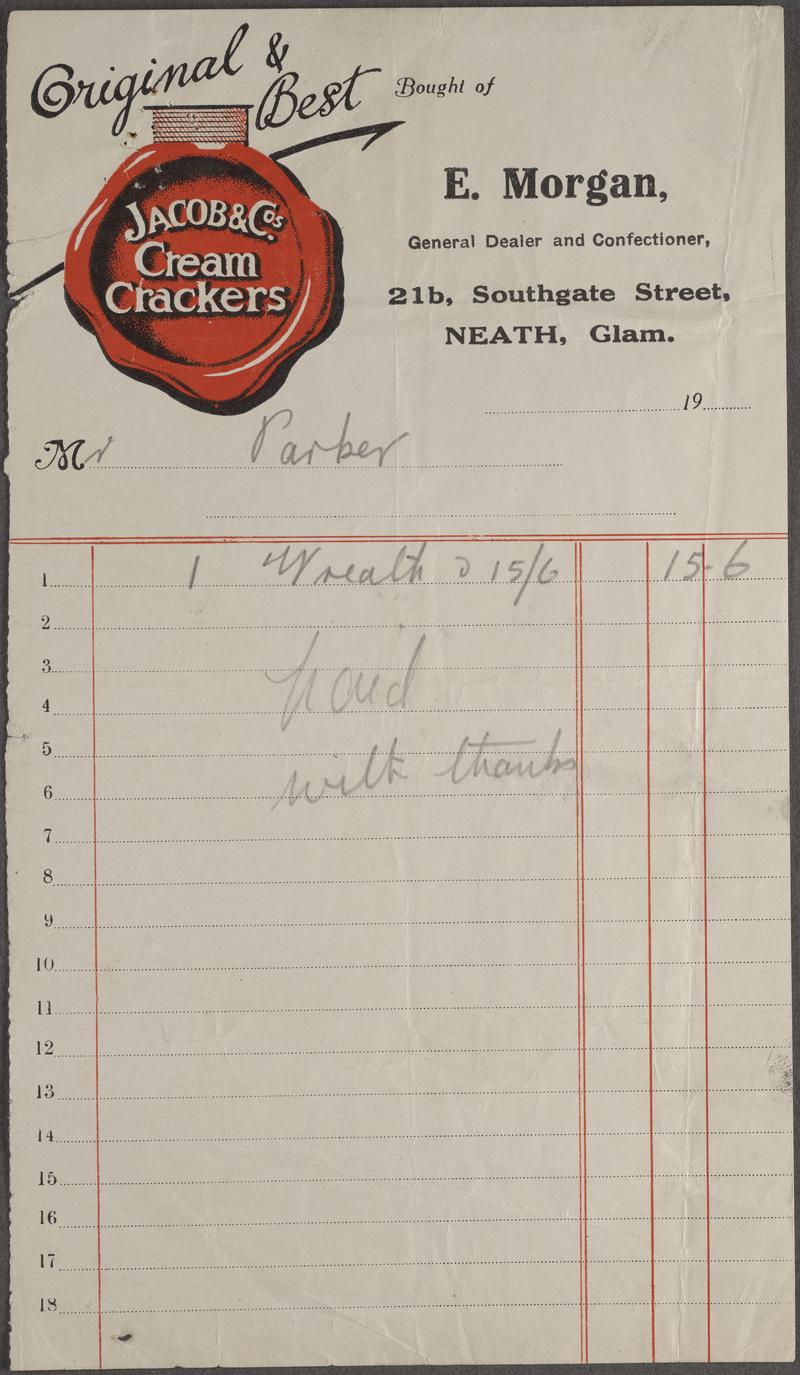 Original &
Best
Bought of
JACOB & Co's
Cream
Crackers
E. Morgan,
General Dealer and Confectioner,
21b, Southgate Street,
NEATH, Glam.
19
Mr Parker
1 1 Wreath 15/6 15-6
2
3
paid
4
5
with thanks
6
7
8
9
10
11
12
13
14
15
16
17
18